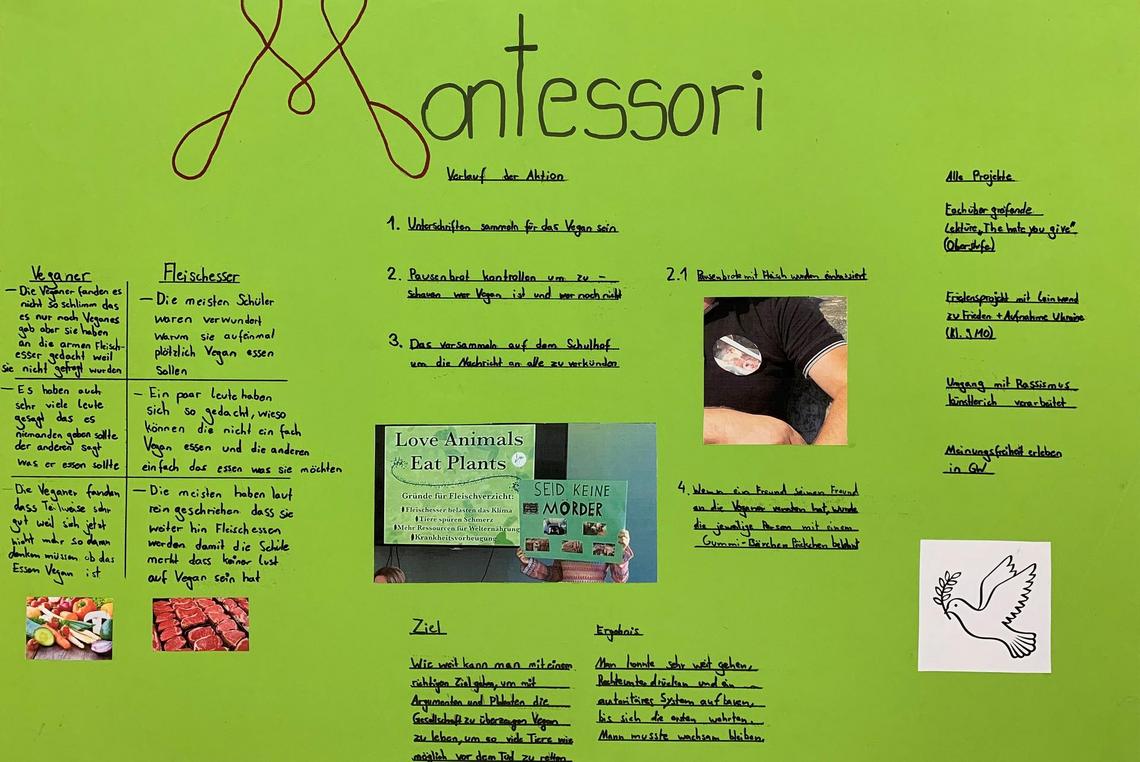 Montessori
Verlauf der Aktion
1. Unterschriften sammeln für das Vegan sein
2. Pausenbrot kontrollen um zu -
schauen wer Vegan ist und wer noch nicht
3. Das versammeln auf dem Schulhof
um die Nachricht an alle zu verkünden
2.1 Pausenbrote mit Fleisch wurden einkassiert
4. Wenn ein Freund seinen Freund
an die Veganer verraten hat, wurde
die jeweilige Person mit einem
Gummi-Bärchen Päckchen belohnt
Veganer
– Die Veganer fanden es
nicht so schlimm das
es nur noch Veganes
gab aber sie haben
an die armen Fleisch-
esser gedacht weil
sie nicht gefragt wurden
– Es haben auch
sehr viele leute
gesagt das es
niemanden geben sollte
der anderen sagt
was er essen sollte
– Die Veganer fanden
dass Teilweise sehr
gut weil sich jetzt
nicht mehr so daran
denken müssen ob das
Essen Vegan ist
Fleischesser
– Die meisten Schüler
waren verwundert
warum sie aufeinmal
plötzlich Vegan essen
sollen
– Ein paar leute haben
sich so gedacht, wieso
können die nicht ein fach
Vegan essen und die anderen
einfach das essen was sie möchten
– Die meisten haben laut
rein geschrieben dass sie
weiter hin Fleischessen
werden damit die Schule
merkt dass keiner lust
auf Vegan sein hat
Love Animals
Eat Plants
Gründe für Fleischverzicht:
Fleischesser belasten das Klima
Tiere spüren Schmerz
Mehr Ressourcen für Welternährung
Krankheitsvorbeugung
SEID KEINE
MÖRDER
Ziel
Wie weit kann man mit einem
richtigen Ziel gehen, um mit
Argumenten und Plakaten die
Gesellschaft zu überzeugen Vegan
zu leben, um so viele Tiere wie
möglich vor dem Tod zu retten
Ergebnis
Man konnte sehr weit gehen,
Rechte unterdrücken und ein
autoritäres System aufbauen,
bis sich die ersten wehrten.
Mann musste wachsam bleiben.
Alle Projekte
Fachübergreifende
Lektüre „The hate you give"
(Oberstufe)
Friedensprojekt mit Leinwand
zu Frieden + Aufnahme Ukraine
(Kl. 9 MO)
Umgang mit Rassismus
künstlerich verarbeitet
Meinungsfreiheit erleben
in GW